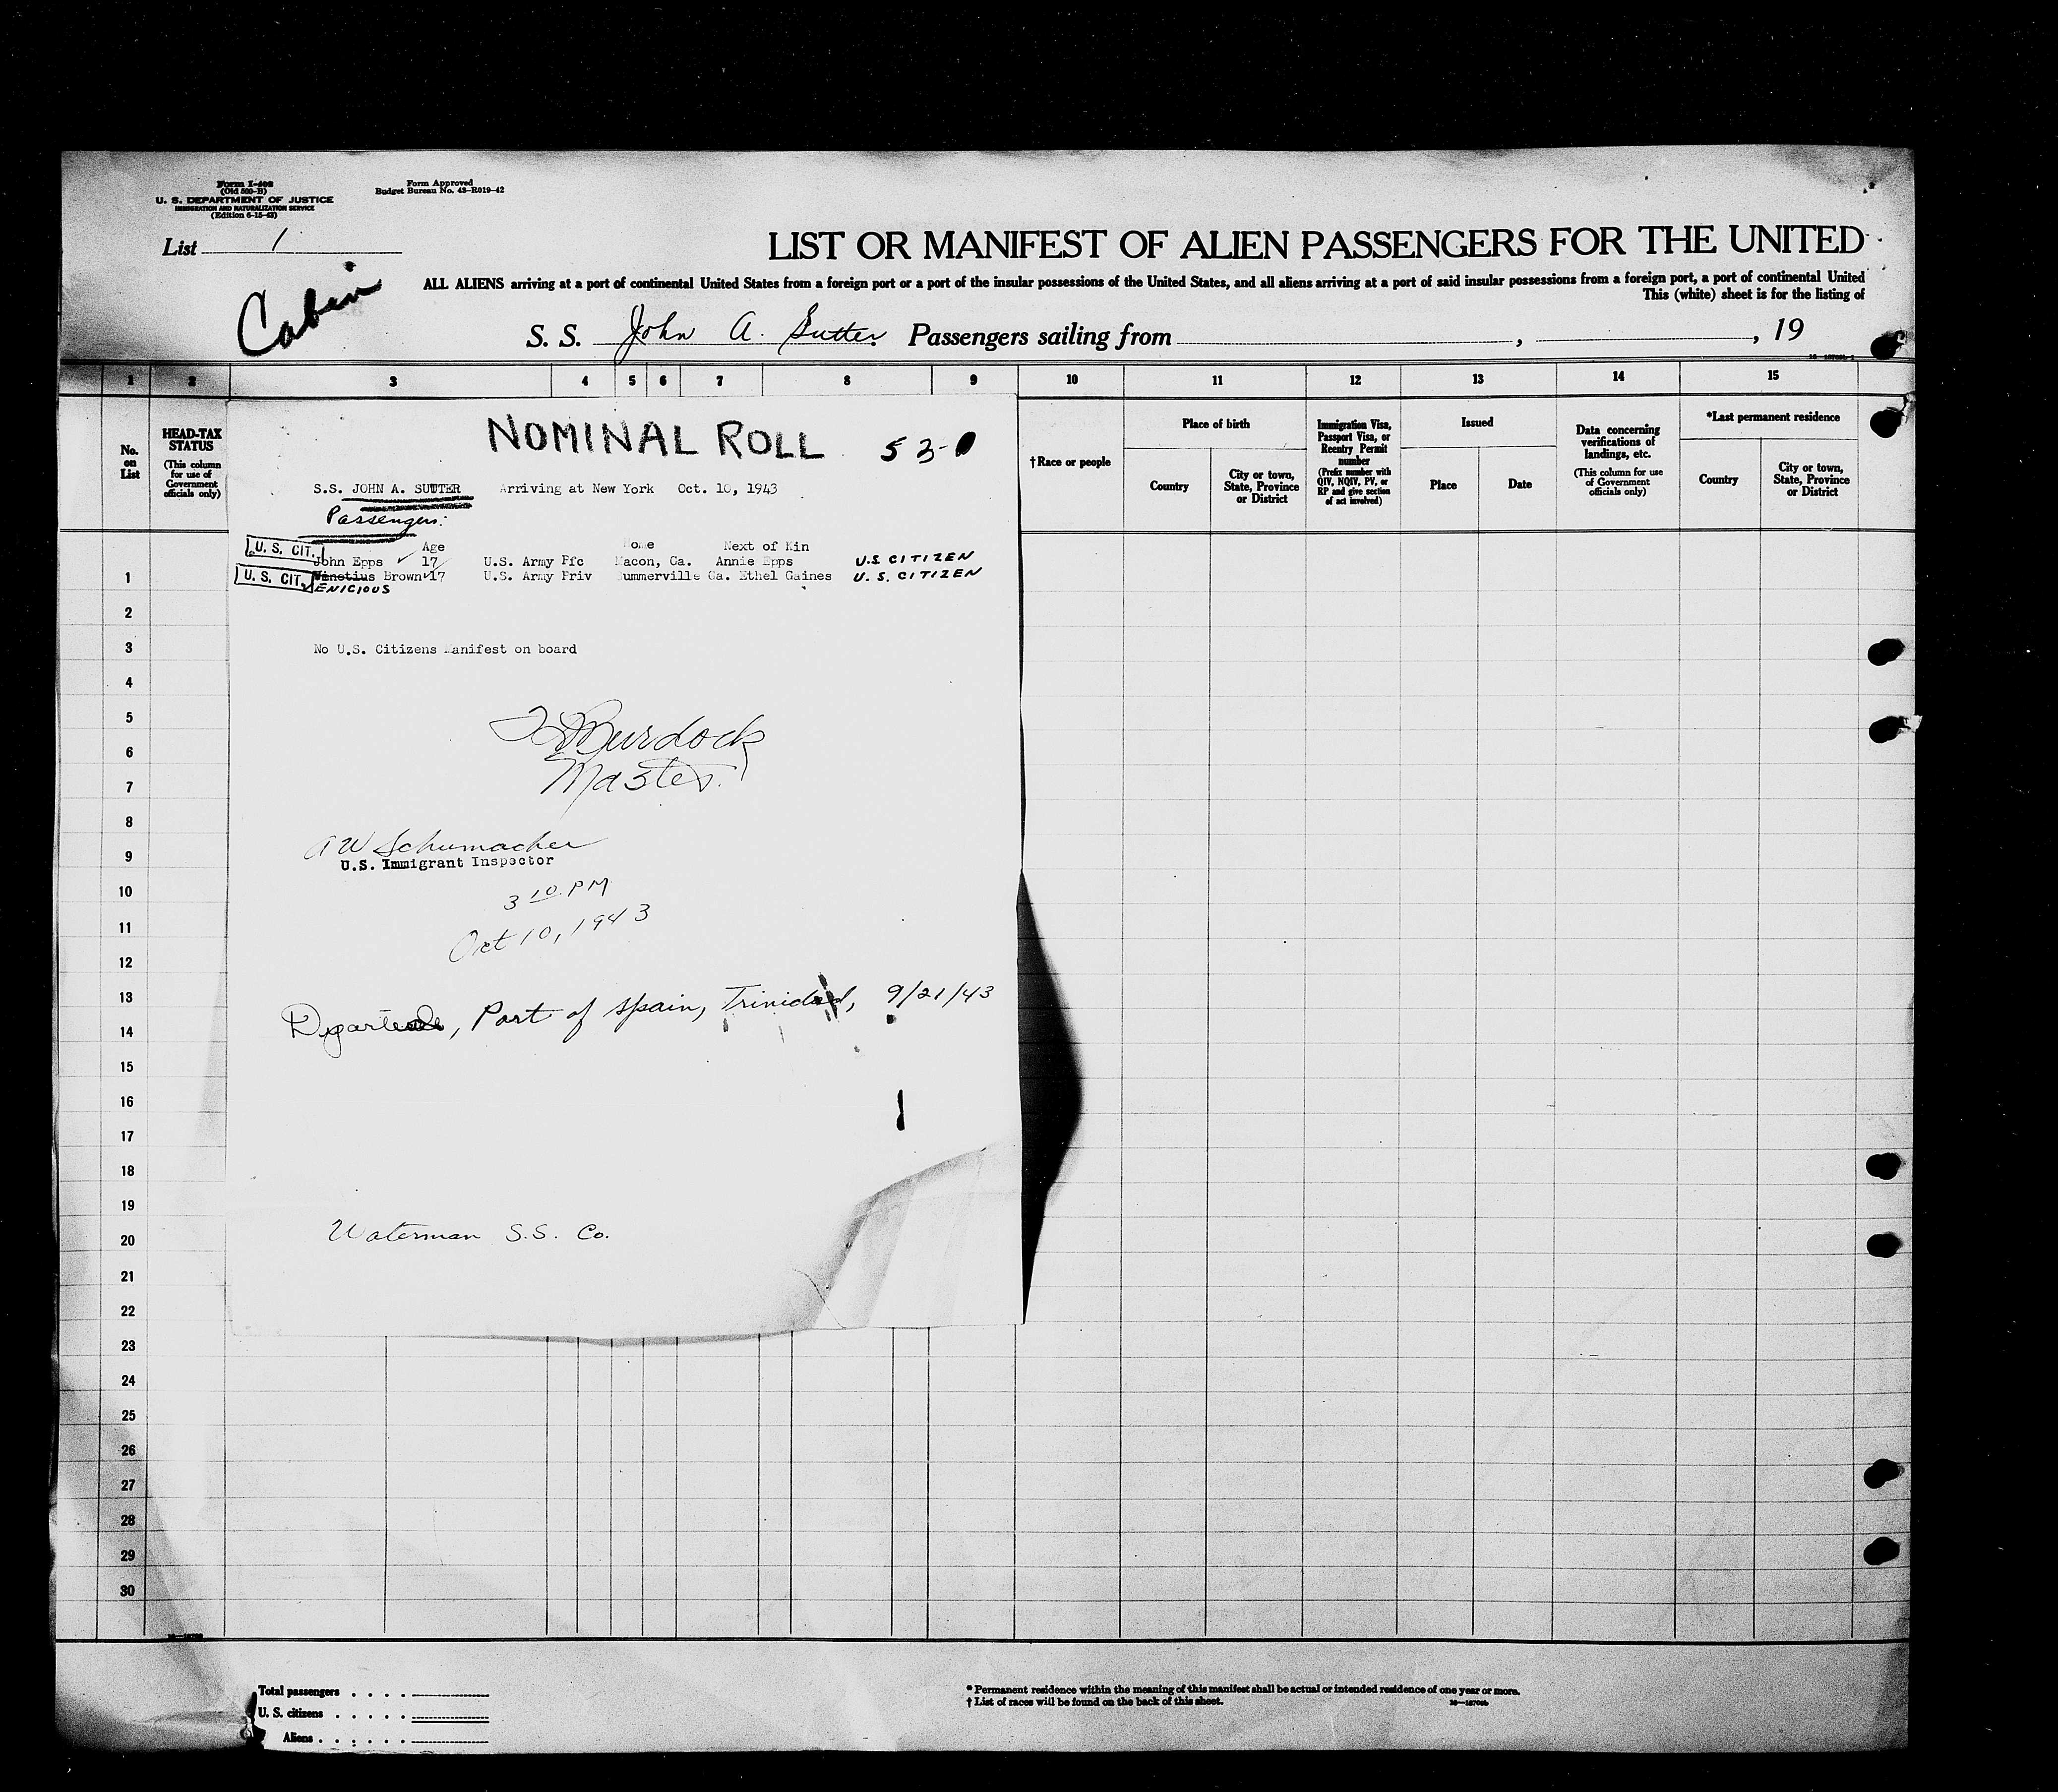 Form I-408
(Old 500-B)
U. S. DEPARTMENT OF JUSTICE
IMMIGRATION AND NATURALIZATION SERVICE
(Edition 6-15-43)
Form Approved
Budget Bureau No. 43-R019-42
List 1
Cabin
LIST OR MANIFEST OF ALIEN PASSENGERS FOR THE UNITED
ALL ALIENS arriving at a port of continental United States from a foreign port or a port of the insular possessions of the United States, and all aliens arriving at a port of said insular possessions from a foreign port, a port of continental United
This (white) sheet is for the listing of
S. S. John A. Sutter Passengers sailing from , , 19
1 2 3 4 5 6 7 8 9 10 11 12 13 14 15
No. on List
HEAD-TAX STATUS
(This column for use of Government officials only)
†Race or people
Place of birth
Country
City or town, State, Province or District
Immigration Visa, Passport Visa, or Reentry Permit number
(Prefix number with QIV, NQIV, PV, or RP and give section of act involved)
Issued
Place
Date
Data concerning verifications of landings, etc.
(This column for use of Government officials only)
*Last permanent residence
Country
City or town, State, Province or District
NOMINAL ROLL 53-0
S.S. JOHN A. SUTTER Arriving at New York Oct. 10, 1943
Passengers:
Age Home Next of Kin
U. S. CIT. John Epps 17 U.S. Army Pfc Macon, Ga. Annie Epps U.S CITIZEN
U. S. CIT. Vinetius Brown 17 U.S. Army Priv Summerville Ga. Ethel Gaines U. S. CITIZEN
VENICIOUS
No U.S. Citizens Manifest on board
Burdock
Master.
A W Schumacher
U.S. Immigrant Inspector
3 10 PM
Oct 10, 1943
Port of Spain, Trinidad, 9/21/43
Waterman S.S. Co.
1
2
3
4
5
6
7
8
9
10
11
12
13
14
15
16
17
18
19
20
21
22
23
24
25
26
27
28
29
30
Total passengers . . . .
U. S. citizens . . . . .
Aliens . . . . . .
* Permanent residence within the meaning of this manifest shall be actual or intended residence of one year or more.
† List of races will be found on the back of this sheet.